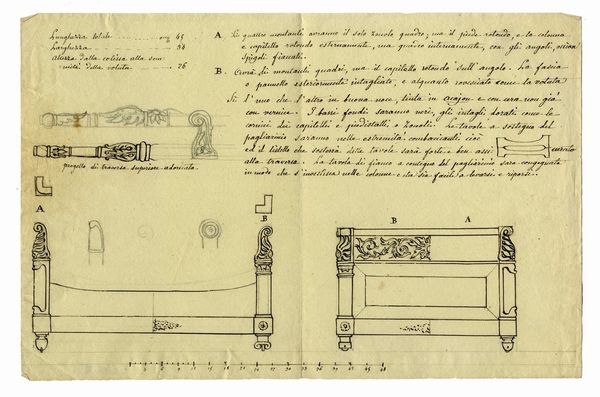 Lunghezza totale onc. 45
Larghezza 34
Altezza dalla coltisa alla som-
mità della voluta 26
A. Li quattro montanti avranno il solo zoccolo quadro; ma il piede rotondo, e la colonna
e capitello rotondo esternamente, ma quadro internamente, con gli angoli, ossia
spigoli fiaccati.
B. montanti quadri, ma il capitello rotondo sull'angolo. La fascia
o pannello esteriormente intagliato, e alquanto rovesciato come la voluta
Sì l'uno che l'altro in buona noce, tinta in acajou e con cera, non già
con vernice. I bassi fondi saranno neri, gli intagli dorati come le
cornici dei capitelli e piedistalli o zoccoli. Le tavole a sostegno del
pagliariccio saranno nelle estremità combacianti cioè
ed il listello che sosterrà dette tavole sarà forte e ben assi-
alla traversa. La tavola di fianco a sostegno del pagliariccio sarà congegnata
in modo che s'innestisca nelle colonne e che sia facile a levarsi e riporsi.
curvato
progetto di traversa superiore adornata.
A
B
B
A
3 6 9 12 15 18 21 24 27 30 33 36 39 42 45 48